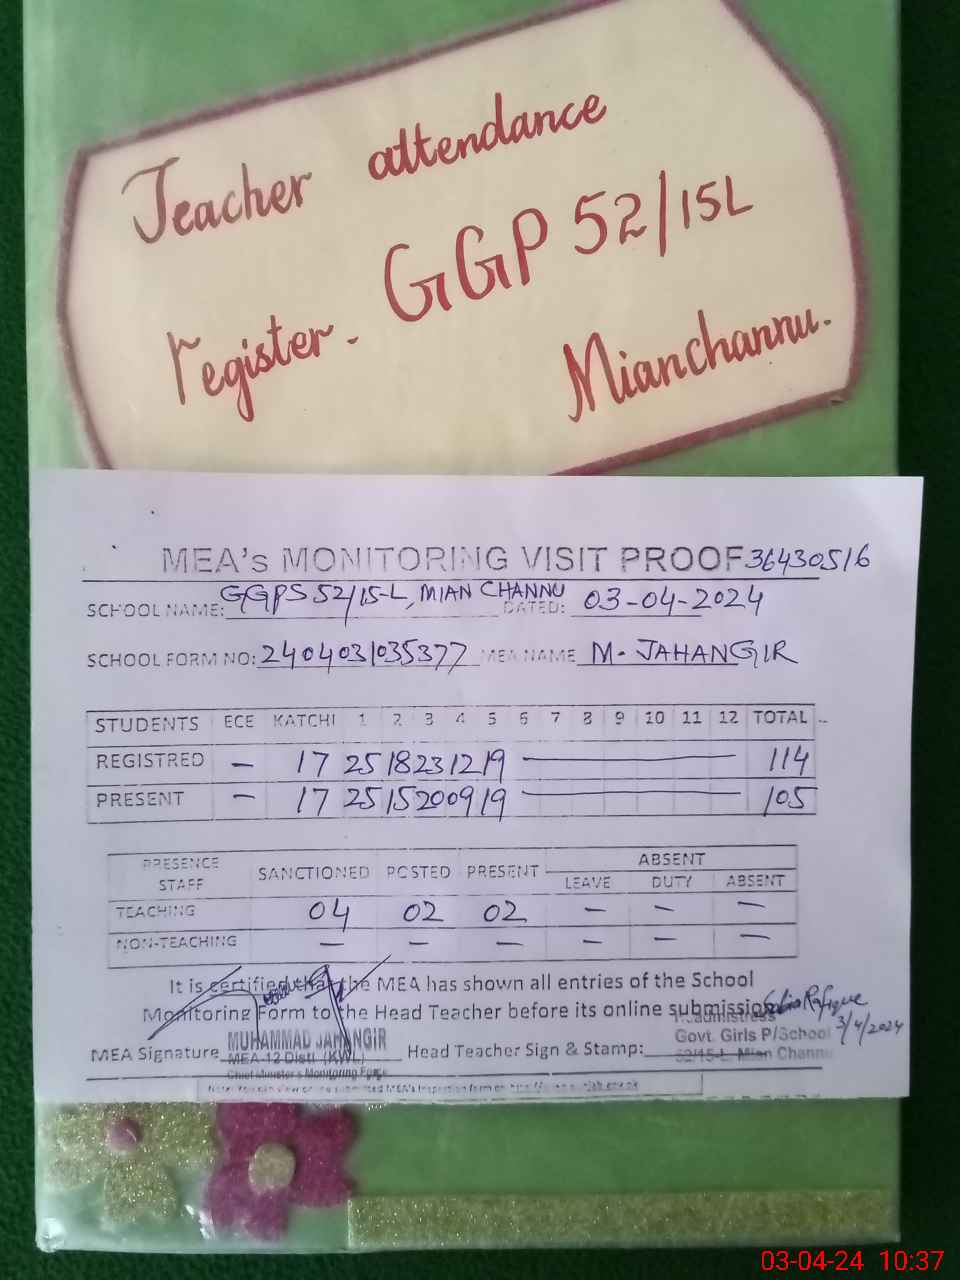 Teacher attendance
register. GGP 52/15L
Mianchannu.
MEA's MONITORING VISIT PROOF 36430516
SCHOOL NAME: GGPS 52/15-L, MIAN CHANNU DATED: 03-04-2024
SCHOOL FORM NO: 2404031035377 MEA NAME M. JAHANGIR
STUDENTS ECE KATCHI 1 2 3 4 5 6 7 8 9 10 11 12 TOTAL
REGISTRED – 17 25 18 23 12 19 — 114
PRESENT – 17 25 15 20 09 19 — 105
PRESENCE STAFF SANCTIONED POSTED PRESENT ABSENT
LEAVE DUTY ABSENT
TEACHING 04 02 02 – – –
NON-TEACHING – – – – – –
It is certified that the MEA has shown all entries of the School
Monitoring Form to the Head Teacher before its online submission
3/4/2024
MEA Signature MUHAMMAD JAHANGIR Head Teacher Sign & Stamp: Govt. Girls P/School
MEA-12 Distt (KWL) 52/15-L Mian Channu
Chief Minister's Monitoring Force
03-04-24 10:37